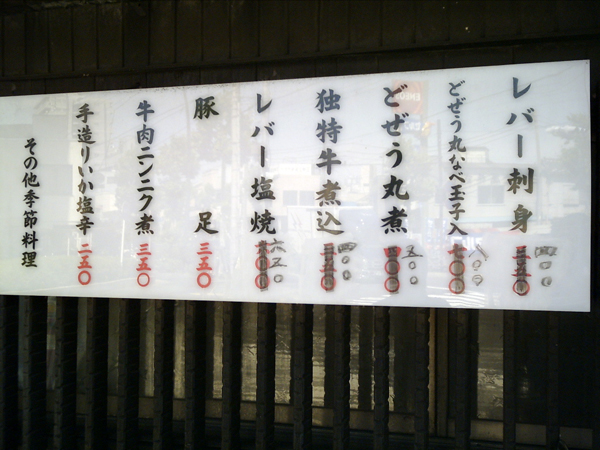 レバー刺身 三五〇 四〇〇
どぜう丸なべ玉子入 七〇〇 八〇〇
どぜう丸煮 四〇〇 五〇〇
独特牛煮込 三五〇 四〇〇
レバー塩焼 六五〇
豚足 三五〇
牛肉ニンニク煮 三五〇
手造りいか塩辛 二五〇
その他季節料理